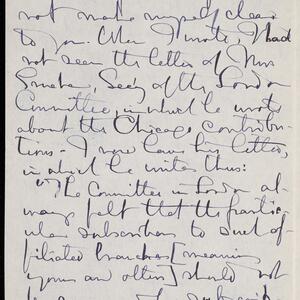 not make myself clear
to you. When I wrote, I had
not seen the letter of Mr
Sec'y of the London
Committee, in which he wrote
about the Chicago contribu-
tions. I now have his letter,
in which he writes thus:
"The Committee in London al-
ways felt that the partic-
ular subscribers to such af-
filiated branches [meaning
yours and others] should not